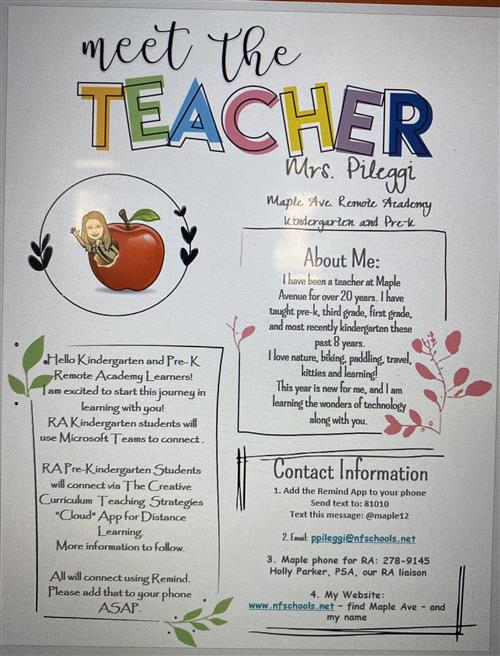 meet the
TEACHER
Mrs. Pileggi
Maple Ave. Remote Academy
Kindergarten and Pre-k
About Me:
I have been a teacher at Maple
Avenue for over 20 years. I have
taught pre-k, third grade, first grade,
and most recently kindergarten these
past 8 years.
I love nature, biking, paddling, travel,
kitties and learning!
This year is new for me, and I am
learning the wonders of technology
along with you.
Hello Kindergarten and Pre-K
Remote Academy Learners!
I am excited to start this journey in
learning with you!
RA Kindergarten students will
use Microsoft Teams to connect.
RA Pre-Kindergarten Students
will connect via The Creative
Curriculum Teaching Strategies
"Cloud" App for Distance
Learning.
More information to follow.
All will connect using Remind.
Please add that to your phone
ASAP.
Contact Information
1. Add the Remind App to your phone
Send text to: 81010
Text this message: @maple12
2. Email: ppileggi@nfschools.net
3. Maple phone for RA: 278-9145
Holly Parker, PSA, our RA liaison
4. My Website:
www.nfschools.net – find Maple Ave – and
my name